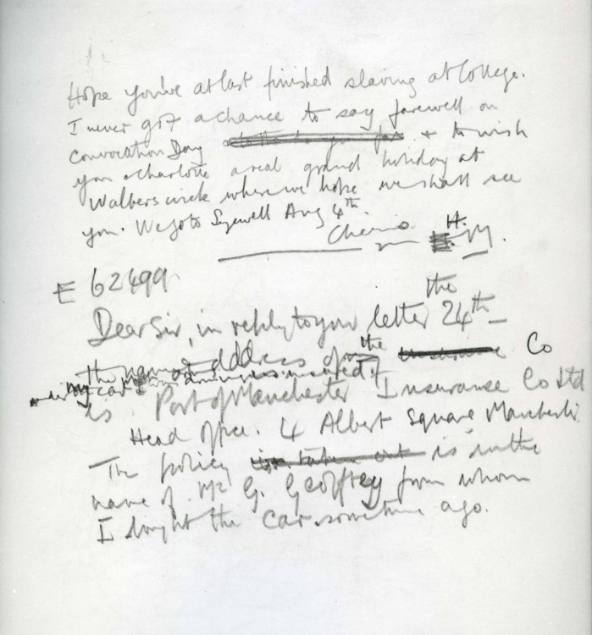 Hope you've at last finished slaving at College.
I never got a chance to say farewell on
Convocation Day + to wish
you + Charlotte a real grand holiday at
Walberswick where we hope we shall see
you. We go to Sizewell Aug 4th.
Cheerio H.M.
E 62499
the
Dear Sir, in reply to your letter 24th –
the name & address of the Co
my car is insured
is Port of Manchester Insurance Co Ltd
Head Office. 4 Albert Square Manchester.
The policy is in the
name of Mr G. Geoffrey from whom
I bought the car sometime ago.